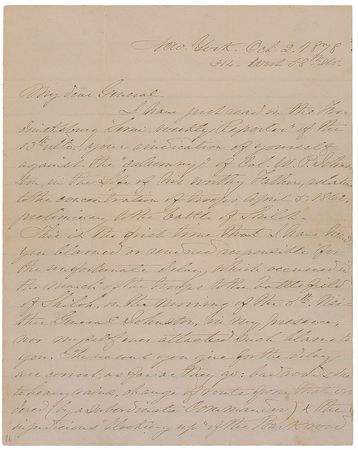 New York. Oct 2. 1878
314. West 28th St.
My dear General
I have just read in the Fre
dericksburg "Semi-weekly Reporter" of the
13th ulto. your vindication of yourself
against the of Col. W. P. Johns
ton, in the Life of his worthy Father, relative
to the concentration of troops April 5, 1862,
preliminary to the battle of Shiloh.
This is the first time that I have
you blamed or rendered responsible for
the unfortunate delay which occurred in
the march of the troops to the battle field
of Shiloh, on the morning of the 5th. Nei
ther General Johnston, in my presence,
nor myself ever attached such blame to
you. The reasons you give for the delay
are correct, as far as they go: bad roads due
to heavy rains, change of route from that or
dered (by a subordinate Commander) & the
injudicious "blocking up" of the road